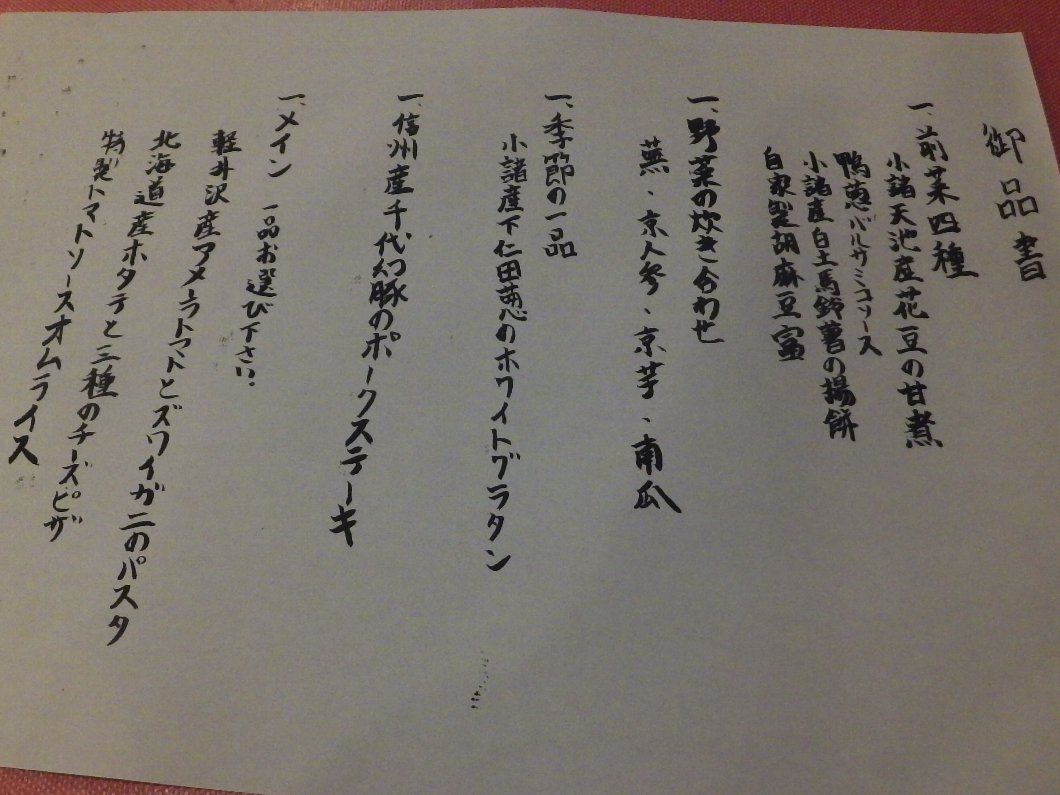 御品書
一、前菜四種
小諸天池産花豆の甘煮
鴨葱バルサミコソース
小諸産白土馬鈴薯の揚餅
自家製胡麻豆富
一、野菜の炊き合わせ
蕪・京人参・京芋・南瓜
一、季節の一品
小諸産下仁田葱のホワイトグラタン
一、信州産千代幻豚のポークステーキ
一、メイン 一品お選び下さい。
軽井沢産アメーラトマトとズワイガニのパスタ
北海道産ホタテと三種のチーズピザ
特製トマトソースオムライス